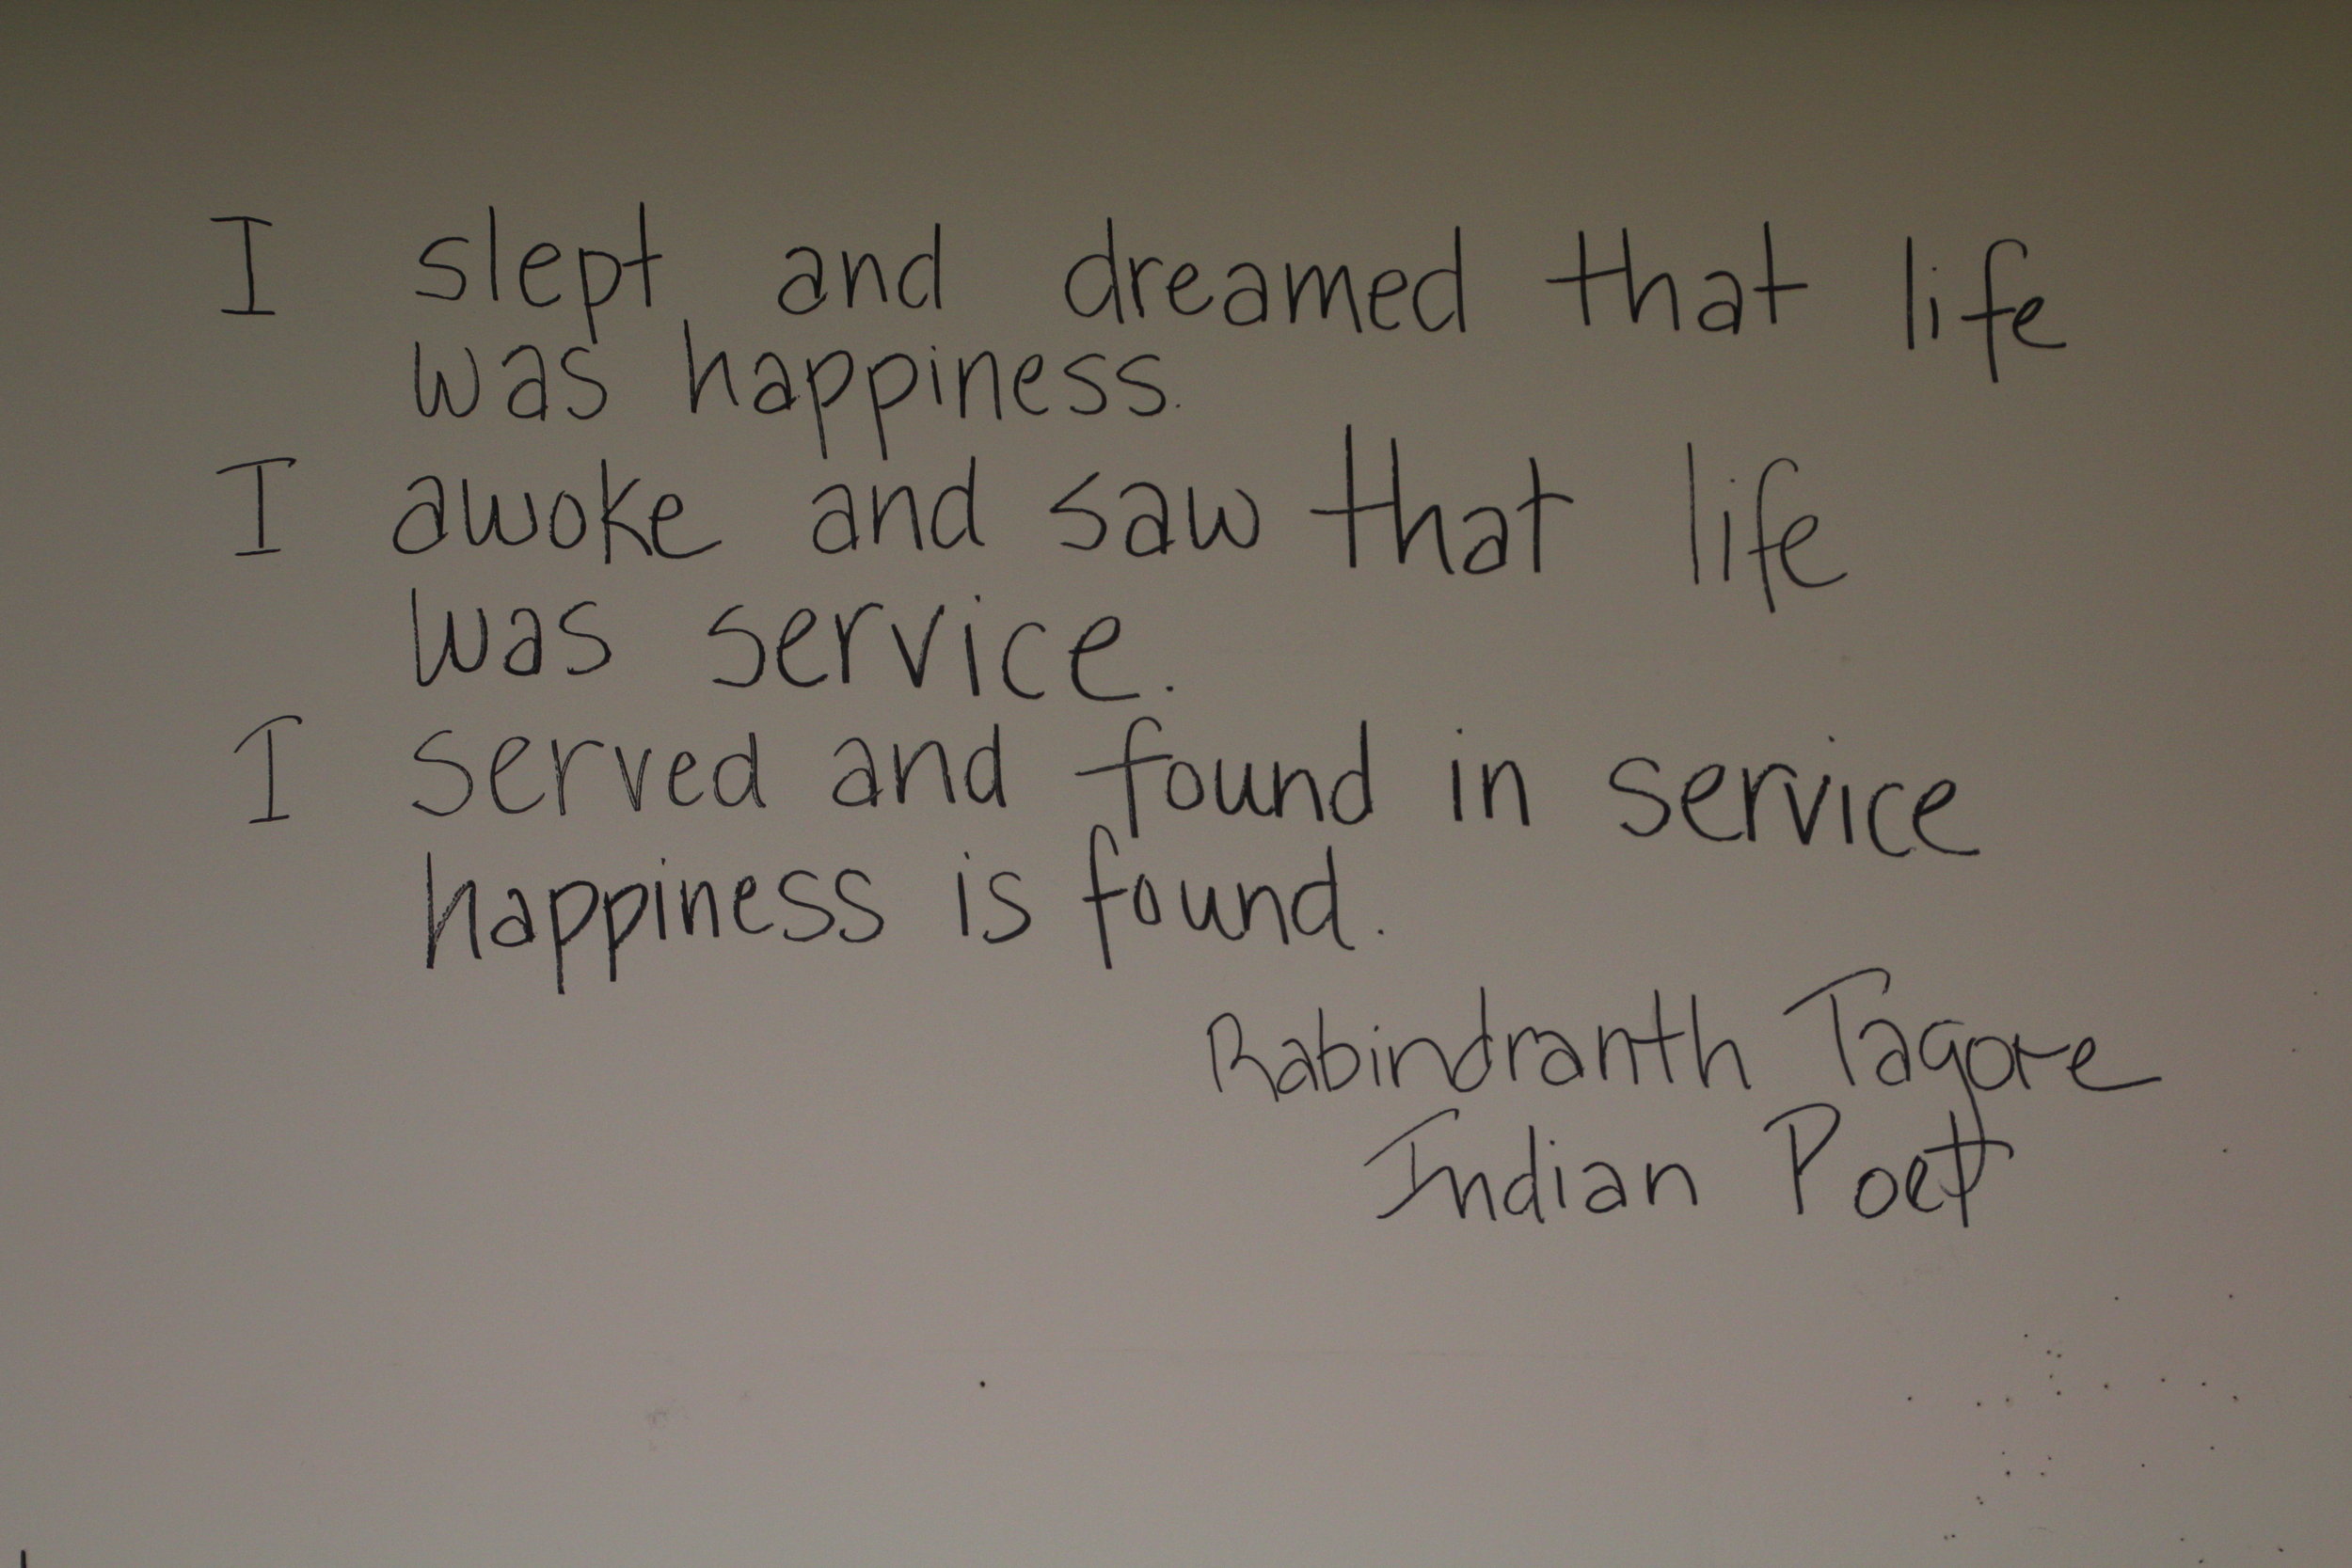 I slept and dreamed that life
was happiness.
I awoke and saw that life
was service.
I served and found in service
happiness is found.
Rabindranth Tagore
Indian Poet